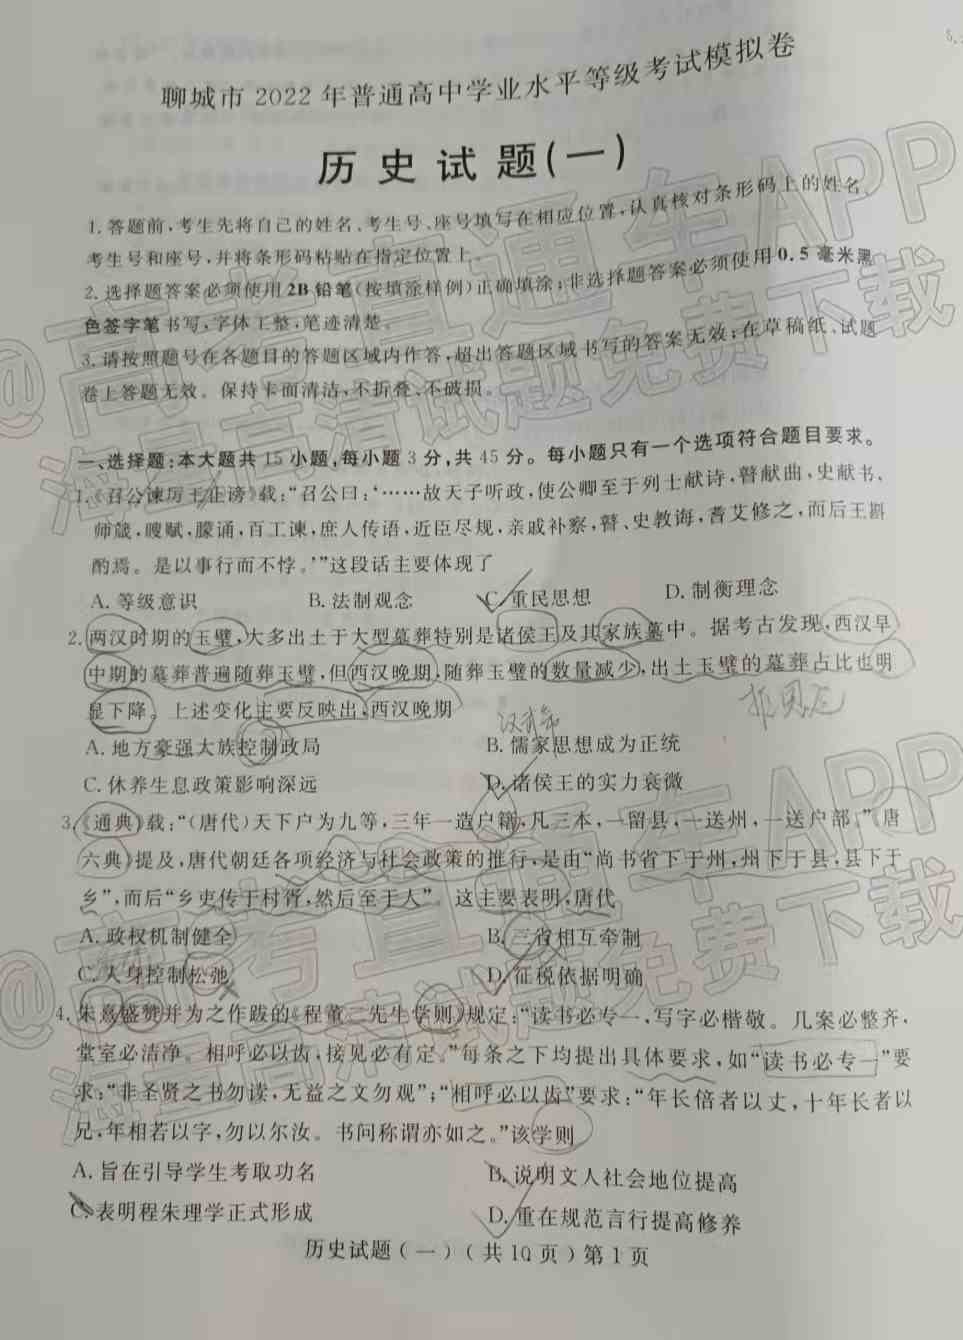 聊城市2022年普通高中学业水平等级考试模拟卷
历史试题(一)
1.答题前,考生先将自己的姓名、考生号、座号填写在相应位置,认真核对条形码上的姓名、
考生号和座号,并将条形码粘贴在指定位置上。
2.选择题答案必须使用2B铅笔(按填涂样例)正确填涂;非选择题答案必须使用0.5毫米黑
色签字笔书写,字体工整,笔迹清楚。
3.请按照题号在各题目的答题区域内作答,超出答题区域书写的答案无效;在草稿纸、试题
卷上答题无效。保持卡面清洁,不折叠、不破损。
一、选择题:本大题共15小题,每小题3分,共45分。每小题只有一个选项符合题目要求。
1.《召公谏厉王止谤》载:“召公曰:‘……故天子听政,使公卿至于列士献诗,瞽献曲,史献书、
师箴,瞍赋,矇诵,百工谏,庶人传语,近臣尽规,亲戚补察,瞽、史教诲,耆艾修之,而后王斟
酌焉。是以事行而不悖。’”这段话主要体现了
A.等级意识 B.法制观念 C.重民思想 D.制衡理念
2.两汉时期的玉璧,大多出土于大型墓葬特别是诸侯王及其家族墓中。据考古发现,西汉早
中期的墓葬普遍随葬玉璧,但西汉晚期,随葬玉璧的数量减少,出土玉璧的墓葬占比也明
显下降。上述变化主要反映出,西汉晚期
汉武帝 推恩令
A.地方豪强大族控制政局 B.儒家思想成为正统
C.休养生息政策影响深远 D.诸侯王的实力衰微
3.《通典》载:“(唐代)天下户为九等,三年一造户籍,凡三本,一留县,一送州,一送户部。”《唐
六典》提及,唐代朝廷各项经济与社会政策的推行,是由“尚书省下于州,州下于县,县下于
乡”,而后“乡吏传于村胥,然后至于人”。这主要表明,唐代
A.政权机制健全 B.三省相互牵制
C.人身控制松弛 D.征税依据明确
4.朱熹盛赞并为之作跋的《程董二先生学则》规定:“读书必专一,写字必楷敬。几案必整齐,
堂室必洁净。相呼必以齿,接见必有定。”每条之下均提出具体要求,如“读书必专一”要
求:“非圣贤之书勿读,无益之文勿观”;“相呼必以齿”要求:“年长倍者以丈,十年长者以
兄,年相若以字,勿以尔汝。书问称谓亦如之。”该学则
A.旨在引导学生考取功名 B.说明文人社会地位提高
C.表明程朱理学正式形成 D.重在规范言行提高修养
历史试题(一)(共10页)第1页
@高考直通车APP
海量高清试题免费下载
@高考直通车APP
海量高清试题免费下载